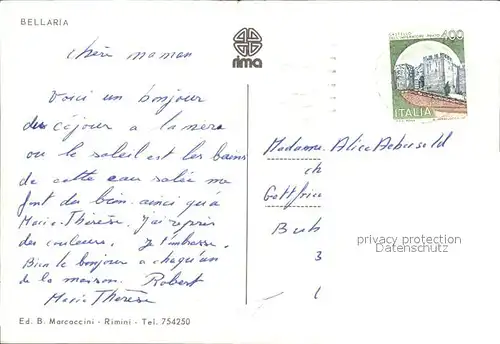 BELLARIA
rima
400
CASTELLO DELL'IMPERATORE PRATO
ITALIA
chère maman
Voici un bonjour
du céjour a la mere
ou le soleil est les bains
de cette eau salée me
font du bien. ainci qu a
Marie-Thérèse. J'ai repris
des couleurs. Je t'embrasse.
Bien le bonjour a chaqu'un
de la maison. Robert
Marie Thérèse
Madame Alice Aebersold
ch
Gottfried
Bub
3
privacy protection
Datenschutz
Ed. B. Marcaccini - Rimini - Tel. 754250